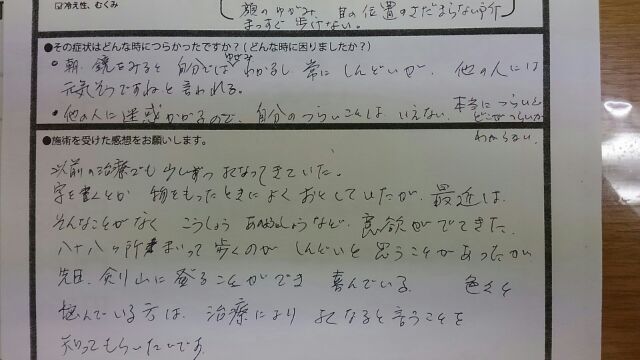 ☑冷え性、むくみ
顔のゆがみ、耳の位置のさだまらない所
まっすぐ歩けない。
●その症状はどんな時につらかったですか?(どんな時に困りましたか?)
朝、鏡をみると自分では わかるし 常に しんどいが、他の人には
元気そうですねと言われる。
・他の人に迷惑かかるので、自分のつらいことは いえない、本当に つらいと
どこがつらいか
わからない。
●施術を受けた感想をお願いします。
以前の治療でも少しずつ よくなってきていた。
字を書くとか 物をもったときに よく おとしていたが、最近は、
そんなことがなく こうしよう など、意欲がでてきた。
八十八ヶ所 まいって 歩くのが しんどいと 思うことがあったが
先日、 山に 登ることができ 喜んでいる。 色々と
悩んでいる方は、治療により よくなると言うことを
知ってもらいたいです。